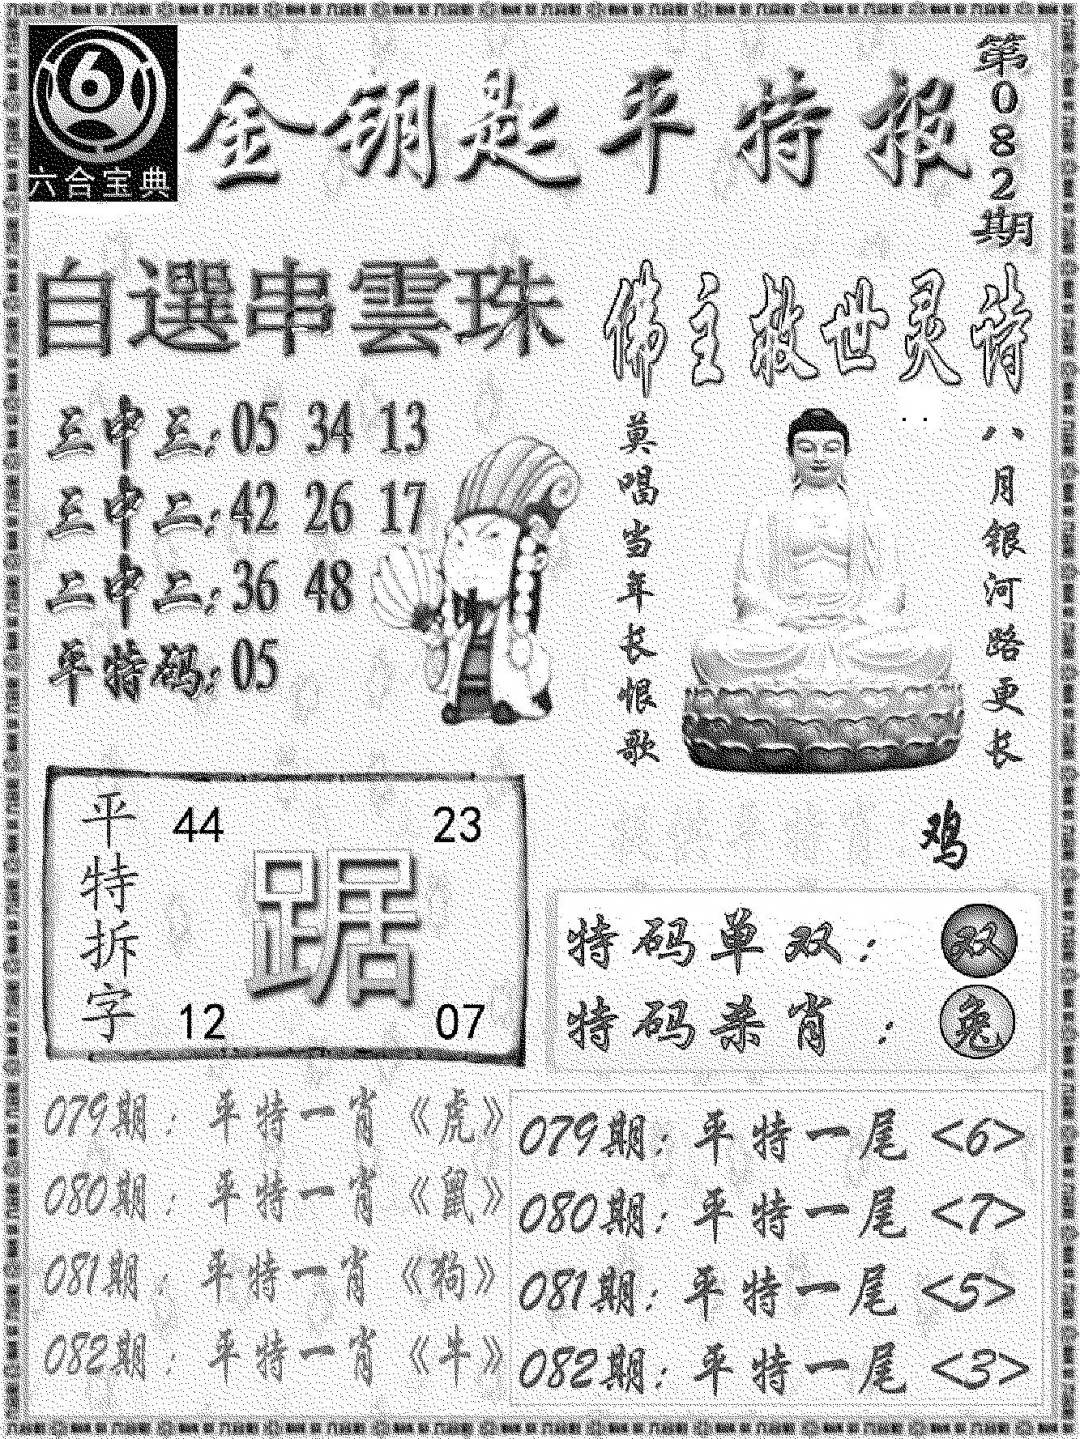 6
六合宝典
金钥匙平特报
第082期
自選串雲珠
三中三:05 34 13
三中二:42 26 17
二中二:36 48
平特码:05
佛主救世灵诗
八月银河路更长
莫唱当年长恨歌
鸡
平特拆字
44 23
踞
12 07
特码单双：双
特码杀肖：兔
079期：平特一肖《虎》
080期：平特一肖《鼠》
081期：平特一肖《狗》
082期：平特一肖《牛》
079期：平特一尾<6>
080期：平特一尾<7>
081期：平特一尾<5>
082期：平特一尾<3>